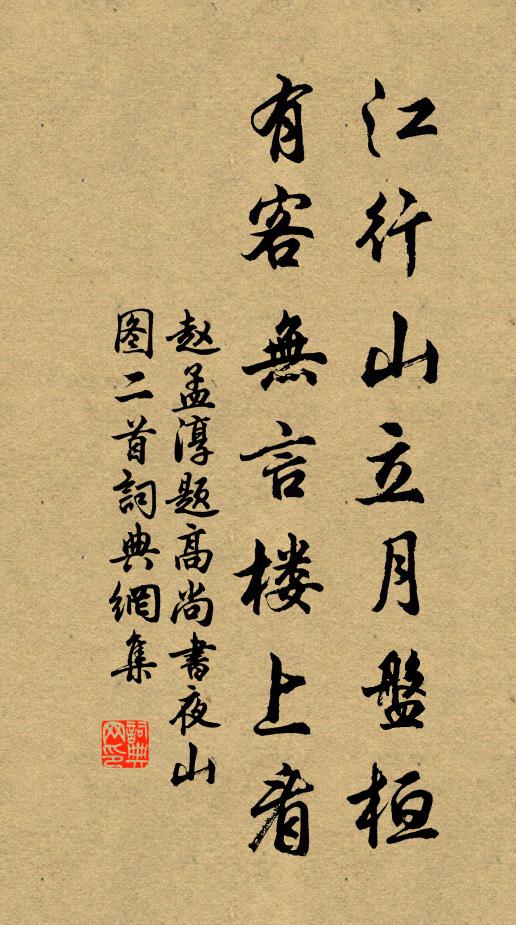 江行山立月盤桓
有客無言楼上看
赵孟淳题高尚書夜山
图二首詞典網集
詞典网印